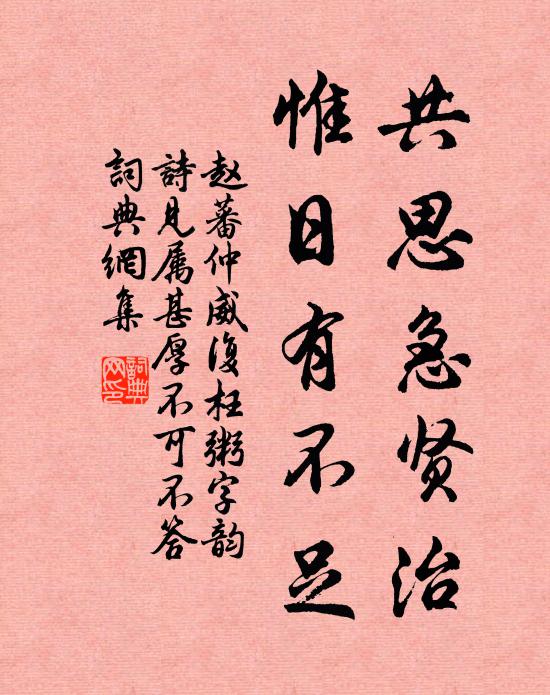 共思急贤治
惟日有不足
赵蕃仲威復枉粥字韵
詩見属甚厚不可不答
詞典網集
詞典网印